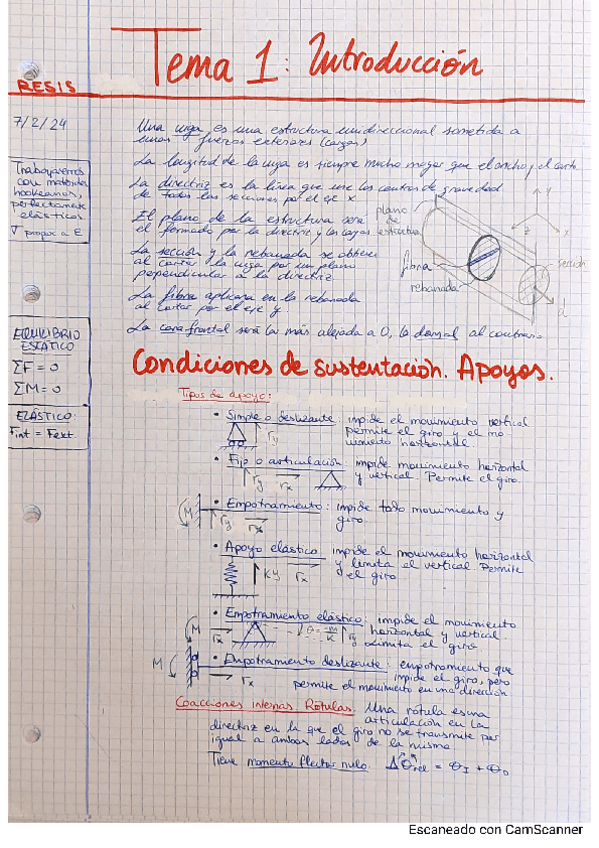 Tema 1: Introducción
RESIS
7/2/24
Trabajaremos
con materiales
hookeanos,
perfectamente
elásticos
∇ propor a ε
EQUILIBRIO
ESTÁTICO
ΣF = 0
ΣM = 0
ELÁSTICO:
Fint = Fext
Una viga es una estructura unidireccional sometida a
unas fuerzas exteriores (cargas)
La longitud de la viga es siempre mucho mayor que el ancho y el canto
La directriz es la línea que une los centros de gravedad
de todas las secciones por el eje x
El plano de la estructura será
el formado por la directriz y las cargas
La sección y la rebanada se obtiene
al cortar la viga por un plano
perpendicular a la directriz
La fibra aparece en la rebanada
al cortar por el eje y
La cara frontal será la más alejada a O, la dorsal al contrario
plano
de
estructura
fibra
rebanada
sección
y
x
z
d
Condiciones de sustentación. Apoyos.
Tipos de apoyo:
• Simple o deslizante: impide el movimiento vertical
permite el giro y el mo-
vimiento horizontal.
ry
• Fijo o articulación impide movimiento horizontal
y vertical. Permite el giro.
ry rx
• Empotramiento: impide todo movimiento y
giro.
M ry rx
• Apoyo elástico impide el movimiento horizontal
y limita el vertical Permite
el giro
Ky rx
• Empotramiento elástico: impide el movimiento
horizontal y vertical
Limita el giro
M rx ry
• Empotramiento deslizante: empotramiento que
impide el giro, pero
permite el movimiento en una dirección
M rx
Coacciones internas. Rótulas. Una rótula es una
articulación en la
directriz en la que el giro no se transmite por
igual a ambos lados de la misma
Tiene momento flector nulo. Δθrel = θI + θD
Escaneado con CamScanner